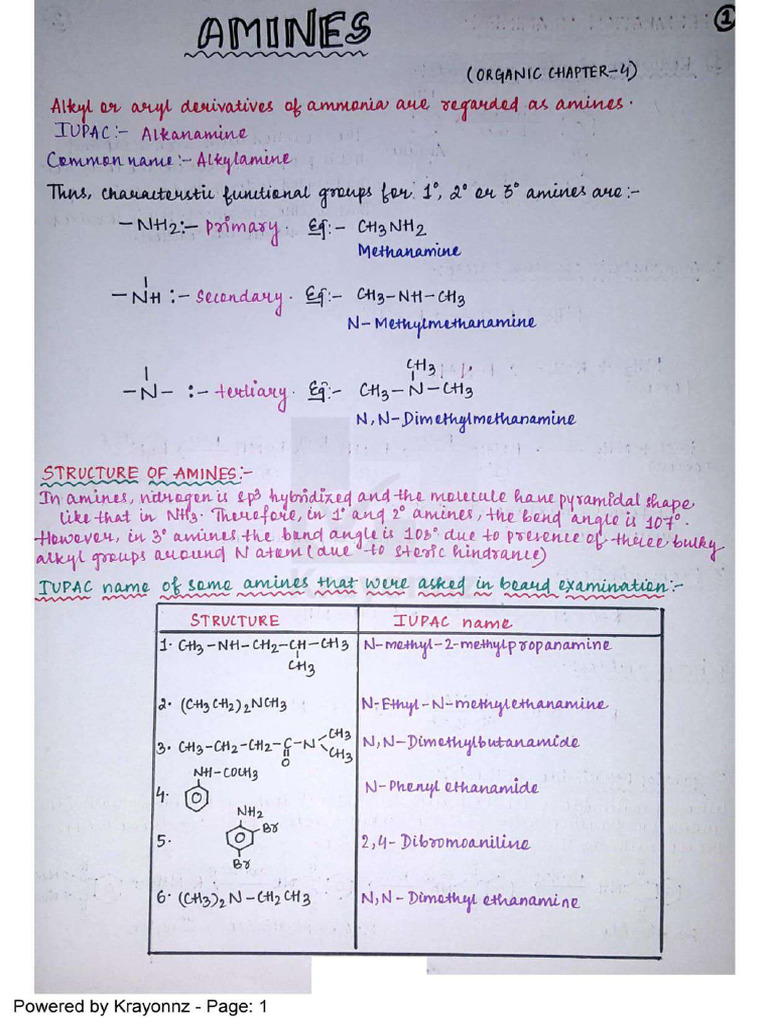 AMINES
1
(ORGANIC CHAPTER-4)
Alkyl or aryl derivatives of ammonia are regarded as amines.
IUPAC:- Alkanamine
Common name:- Alkylamine
Thus, characterstic functional groups for 1°, 2° or 3° amines are:-
-NH2:- primary. Eg:- CH3NH2
Methanamine
-NH :- Secondary. Eg:- CH3-NH-CH3
N-Methylmethanamine
CH3
-N- :- tertiary. Eg:- CH3-N-CH3
N,N-Dimethylmethanamine
STRUCTURE OF AMINES:-
In amines, nitrogen is sp3 hybridized and the molecule have pyramidal shape
like that in NH3. Therefore, in 1° and 2° amines, the bond angle is 107°.
However, in 3° amines the bond angle is 108° due to presence of three bulky
alkyl groups around N atom (due to steric hindrance)
IUPAC name of some amines that were asked in board examination:-
STRUCTURE IUPAC name
1. CH3-NH-CH2-CH-CH3 N-methyl-2-methylpropanamine
CH3
2. (CH3CH2)2NCH3 N-Ethyl-N-methylethanamine
3. CH3-CH2-CH2-C-N CH3 CH3 N,N-Dimethylbutanamide
O
NH-COCH3
4. N-Phenyl ethanamide
NH2
Br
5. 2,4-Dibromoaniline
Br
6. (CH3)2N-CH2CH3 N,N-Dimethyl ethanamine
Powered by Krayonnz - Page: 1